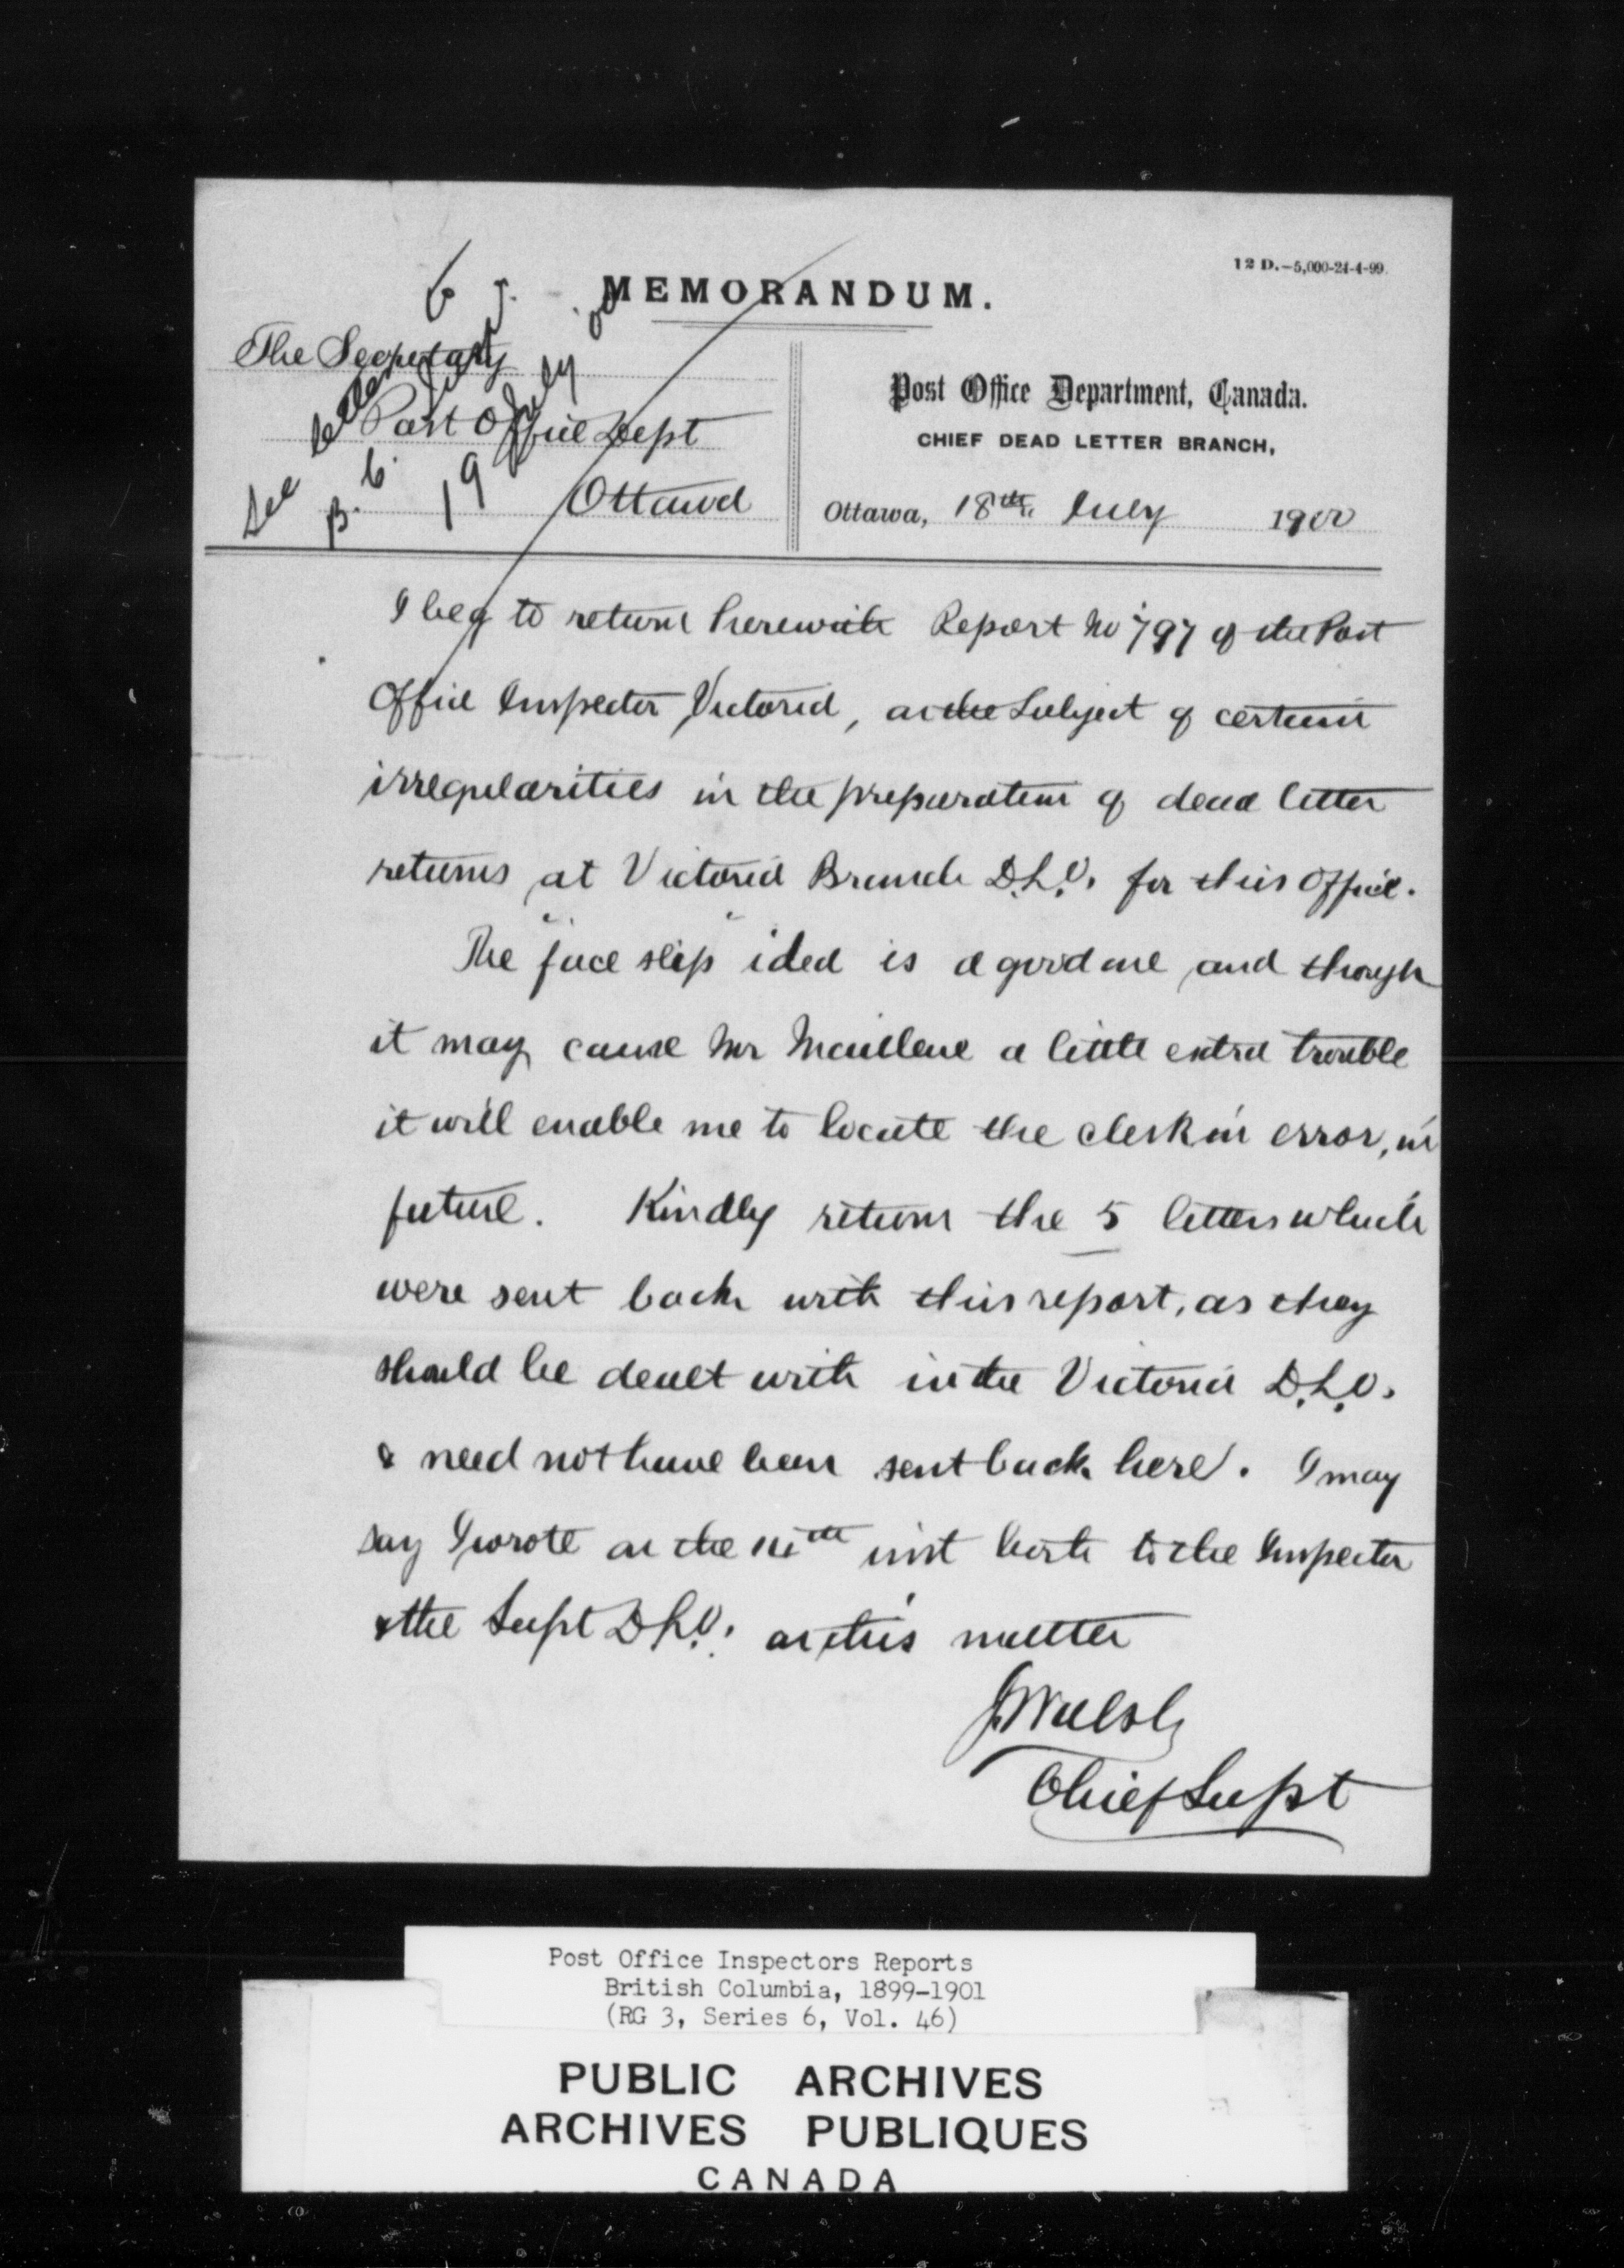 12 D.-5,000-24-4-99.
MEMORANDUM.
The Secretary
Post Office Dept
Ottawa
See letter
B. C. 19 July 00
Post Office Department, Canada.
CHIEF DEAD LETTER BRANCH,
Ottawa, 18th July 1900
I beg to return herewith Report No 797 of the Post
Office Inspector Victoria, on the subject of certain
irregularities in the preparation of dead letter
returns at Victoria Branch D.L.O. for this office.
The "face slip" idea is a good one and though
it may cause Mr a little extra trouble
it will enable me to locate the clerk in error, in
future. Kindly return the 5 letters which
were sent back with this report, as they
should be dealt with in the Victoria D.L.O.
& need not have been sent back here. I may
say I wrote on the inst both to the Inspector
& the Supt D.L.O. on this matter
J Walsh
Chief Supt
Post Office Inspectors Reports
British Columbia, 1899-1901
(RG 3, Series 6, Vol. 46)
PUBLIC ARCHIVES
ARCHIVES PUBLIQUES
CANADA